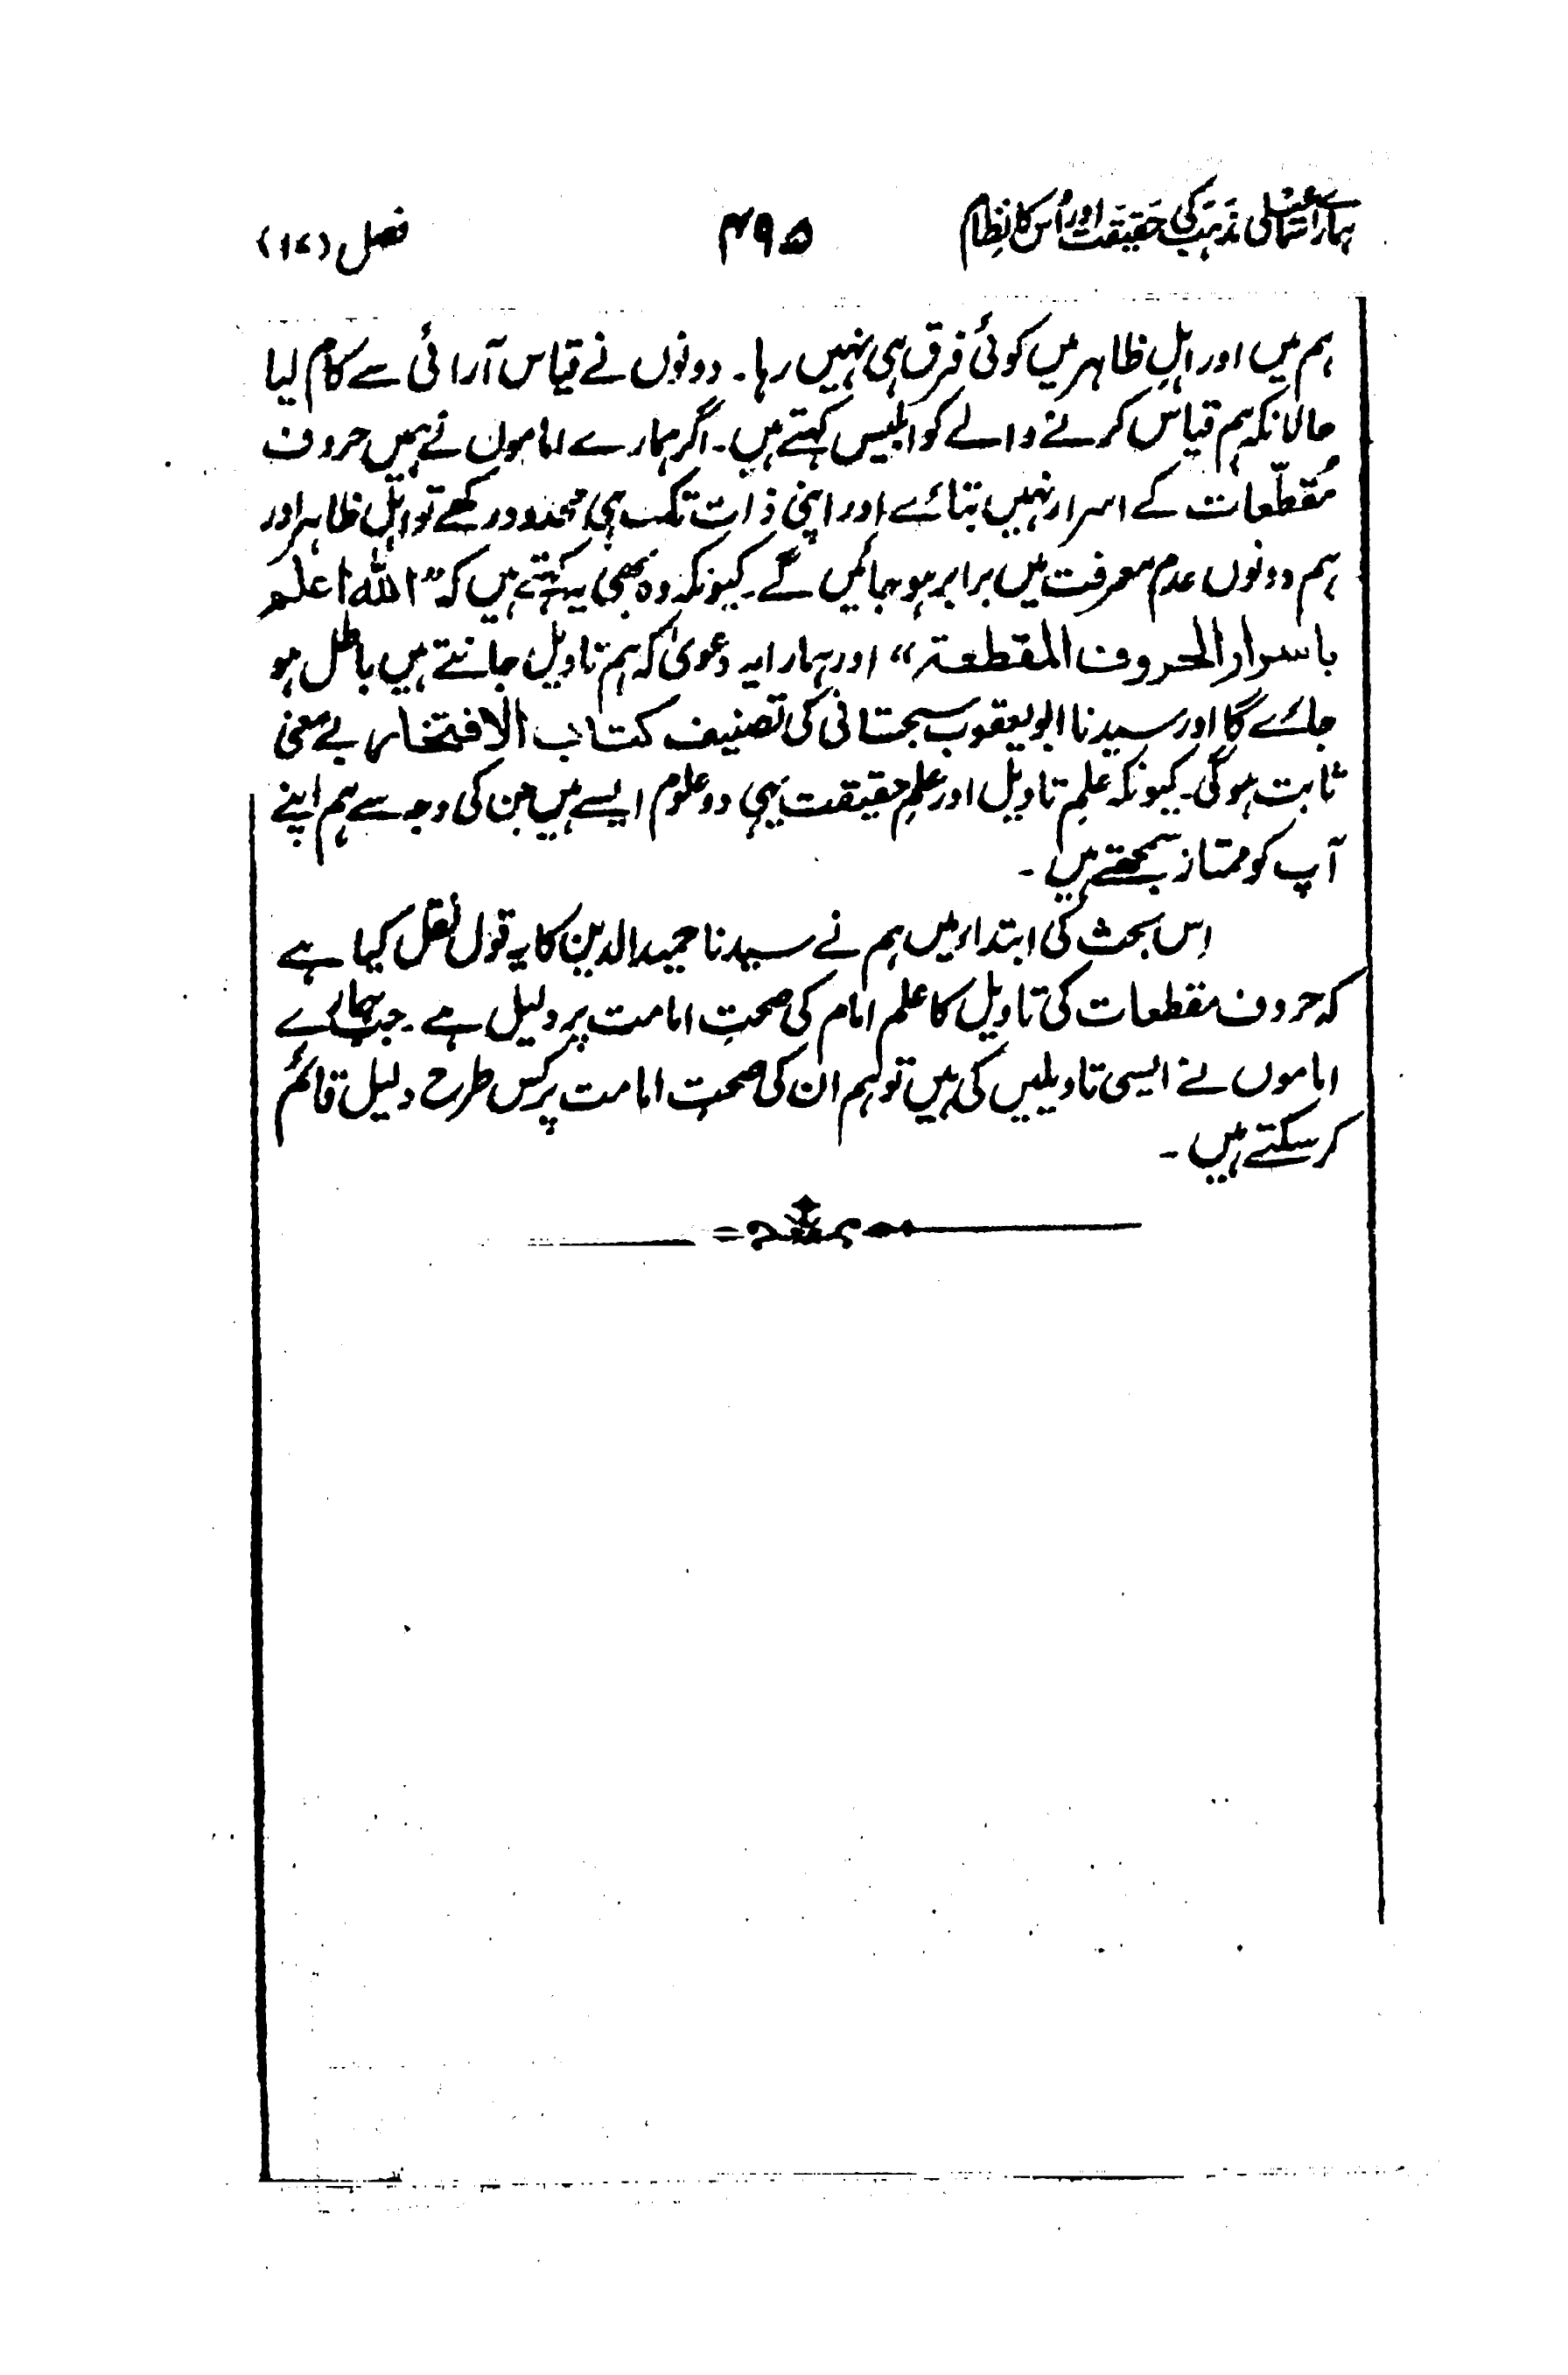 ہمارے اسمٰعیلی مذہب کی حقیقت اور اُس کا نظام
۴۹۵
فصل (۱۷)
ہم میں اور اہلِ ظاہر میں کوئی فرق ہی نہیں رہا۔ دونوں نے قیاس آرائی سے کام لیا
حالانکہ ہم قیاس کرنے والے کو ابلیس کہتے ہیں۔ اگر ہمارے اماموں نے ہمیں حروف
مُقطّعات کے اسرار نہیں بتائے اور اپنی ذات تک ہی محدود رکھے تو اہلِ ظاہر اور
ہم دونوں عدم معرفت میں برابر ہو جائیں گے۔ کیونکہ وہ بھی یہ کہتے ہیں کہ ”اللہ اعلم
باسرار الحروف المقطعۃ“ اور ہمارا یہ دعویٰ کہ ہم تاویل جانتے ہیں باطل ہو
جائے گا اور سیدنا ابو یعقوب سجستانی کی تصنیف کتاب الافتخار بے معنی
ثابت ہوگی۔ کیونکہ علمِ تاویل اور علمِ حقیقت یہی دو علوم ایسے ہیں جن کی وجہ سے ہم اپنے
آپ کو ممتاز سمجھتے ہیں۔
اِس بحث کی ابتداء میں ہم نے سیدنا حمید الدین کا یہ قول نقل کیا ہے
کہ حروف مقطعات کی تاویل کا علم امام کی صحتِ امامت پر دلیل ہے۔ جب ہمارے
اماموں نے ایسی تاویلیں کی ہیں تو ہم ان کی صحتِ امامت پر کس طرح دلیل قائم
کر سکتے ہیں۔